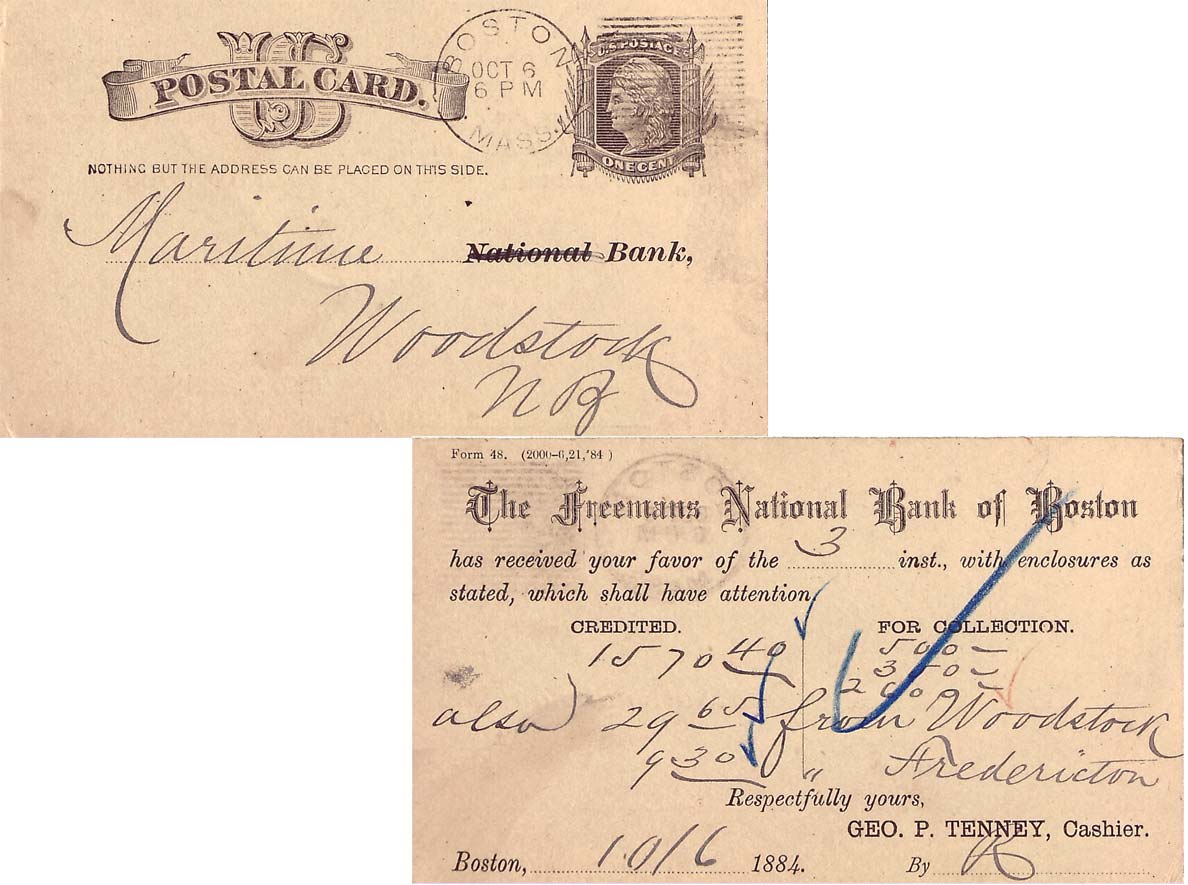 US
POSTAL CARD.
BOSTON
OCT 6
6 PM
MASS.
U.S. POSTAGE
ONE CENT
NOTHING BUT THE ADDRESS CAN BE PLACED ON THIS SIDE.
Maritime National Bank,
Woodstock
N B
Form 48. (2000-6,21,'84)
The Freemans National Bank of Boston
has received your favor of the 3 inst., with enclosures as
stated, which shall have attention.
CREDITED. FOR COLLECTION.
1570 40 500 —
350 —
200 —
also 29 65 from Woodstock
9 30 " Fredericton
Respectfully yours,
GEO. P. TENNEY, Cashier.
Boston, 10/6 1884. By